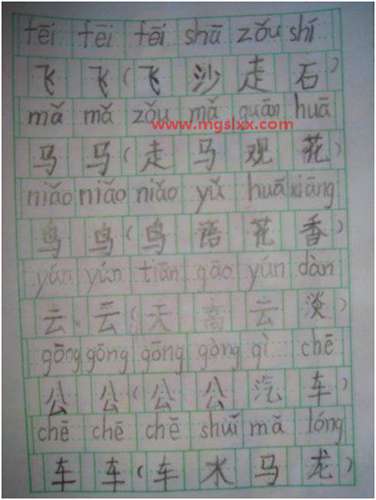 fēi fēi fēi shā zǒu shí
飞 飞（飞 沙 走 石）
mǎ mǎ zǒu mǎ guān huā
www.mgslxx.com
马 马（走 马 观 花）
niǎo niǎo niǎo yǔ huā xiāng
鸟 鸟（鸟 语 花 香）
yún yún tiān gāo yún dàn
云 云（天 高 云 淡）
gōng gōng gōng gòng qì chē
公 公（公 公 汽 车）
chē chē chē shuǐ mǎ lóng
车 车（车 水 马 龙）